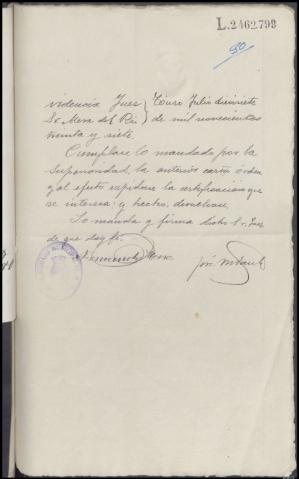 L.2462.798
50
videncia Juez } Touro Julio diecisiete
Sr Mera del Rio } de mil novecientos
treinta y siete.
Cumplase lo mandado por la
Superioridad, la anterior carta orden
y al efecto expidase la certificacion que
se interesa; y hecho, devuelvase.
Lo manda y firma dicho Sr Juez
de que doy fe.
Mera
José